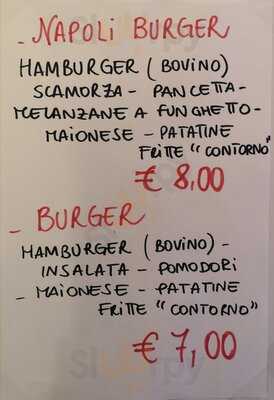 - NAPOLI BURGER
HAMBURGER (BOVINO)
SCAMORZA - PANCETTA -
MELANZANE A FUNGHETTO -
MAIONESE - PATATINE
FRITTE "CONTORNO"
€ 8,00
- BURGER
HAMBURGER (BOVINO) -
INSALATA - POMODORI
- MAIONESE - PATATINE
FRITTE "CONTORNO")
€ 7,00